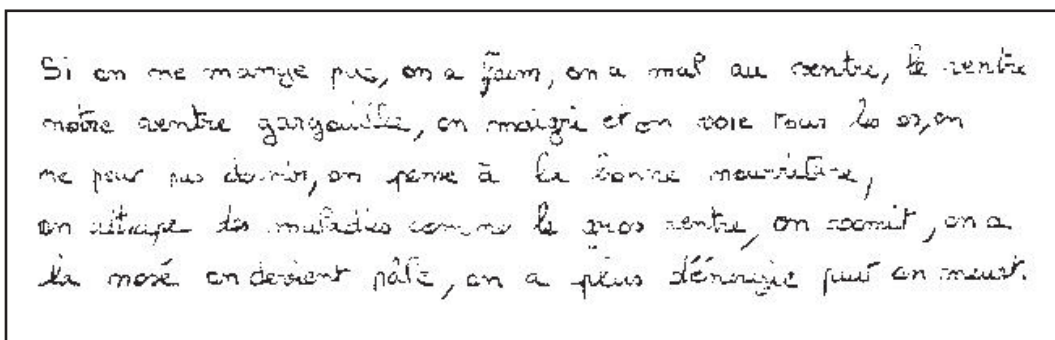 Si on ne mange pas, on a faim, on a mal au ventre, le ventre
notre ventre gargouille, on maigri et on voie tous les os, on
ne peur pas dormir, on pense à la bonne nourriture,
on attrape des maladies comme le gros ventre, on vomit, on a
la nosé on devient pâle, on a plus d'énergie puit on meurt.